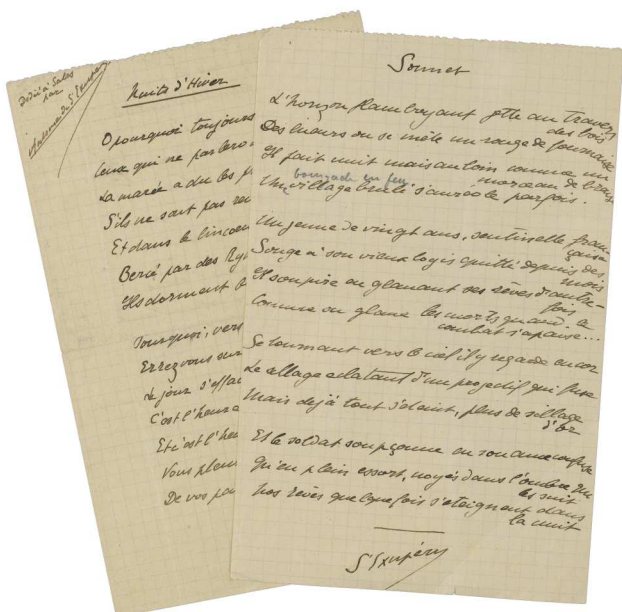 Dédié à Sales
par
Antoine de St Exupéry
Nuits d'Hiver
O pourquoi toujours
Ceux qui ne parlero
La marée a du les p
S'ils ne sont pas re
Et dans le linceu
Bercé par des Ry
Ils dorment
Pourquoi, vers
Errez vous sur
Le jour s'effac
C'est l'heure
Et c'est l'heu
Vous pleu
De vos pa
Sonnet
L'horizon flamboyant jette au travers
des bois
Des lueurs ou se mêle un rouge de fournaise
Il fait nuit mais au loin comme un
morceau de braise
bourgade en feu
Un village brulé s'auréole parfois.
Un jeune de vingt ans, sentinelle fran-
çaise
Songe à son vieux logis quitté depuis des
mois
Il soupire en glanant ses rêves d'autre-
fois
Comme on glane les morts quand le
combat s'apaise...
Se tournant vers le ciel il y regarde encor
Le sillage éclatant d'un projectif qui fuse
Mais déjà tout s'éteint, plus de sillage
d'or
Et le soldat soupçonne en son ame confuse
Qu'en plein essort, noyés dans l'ombre qui
les suit
Nos rêves quelquefois s'éteignent dans
la nuit
St Exupéry